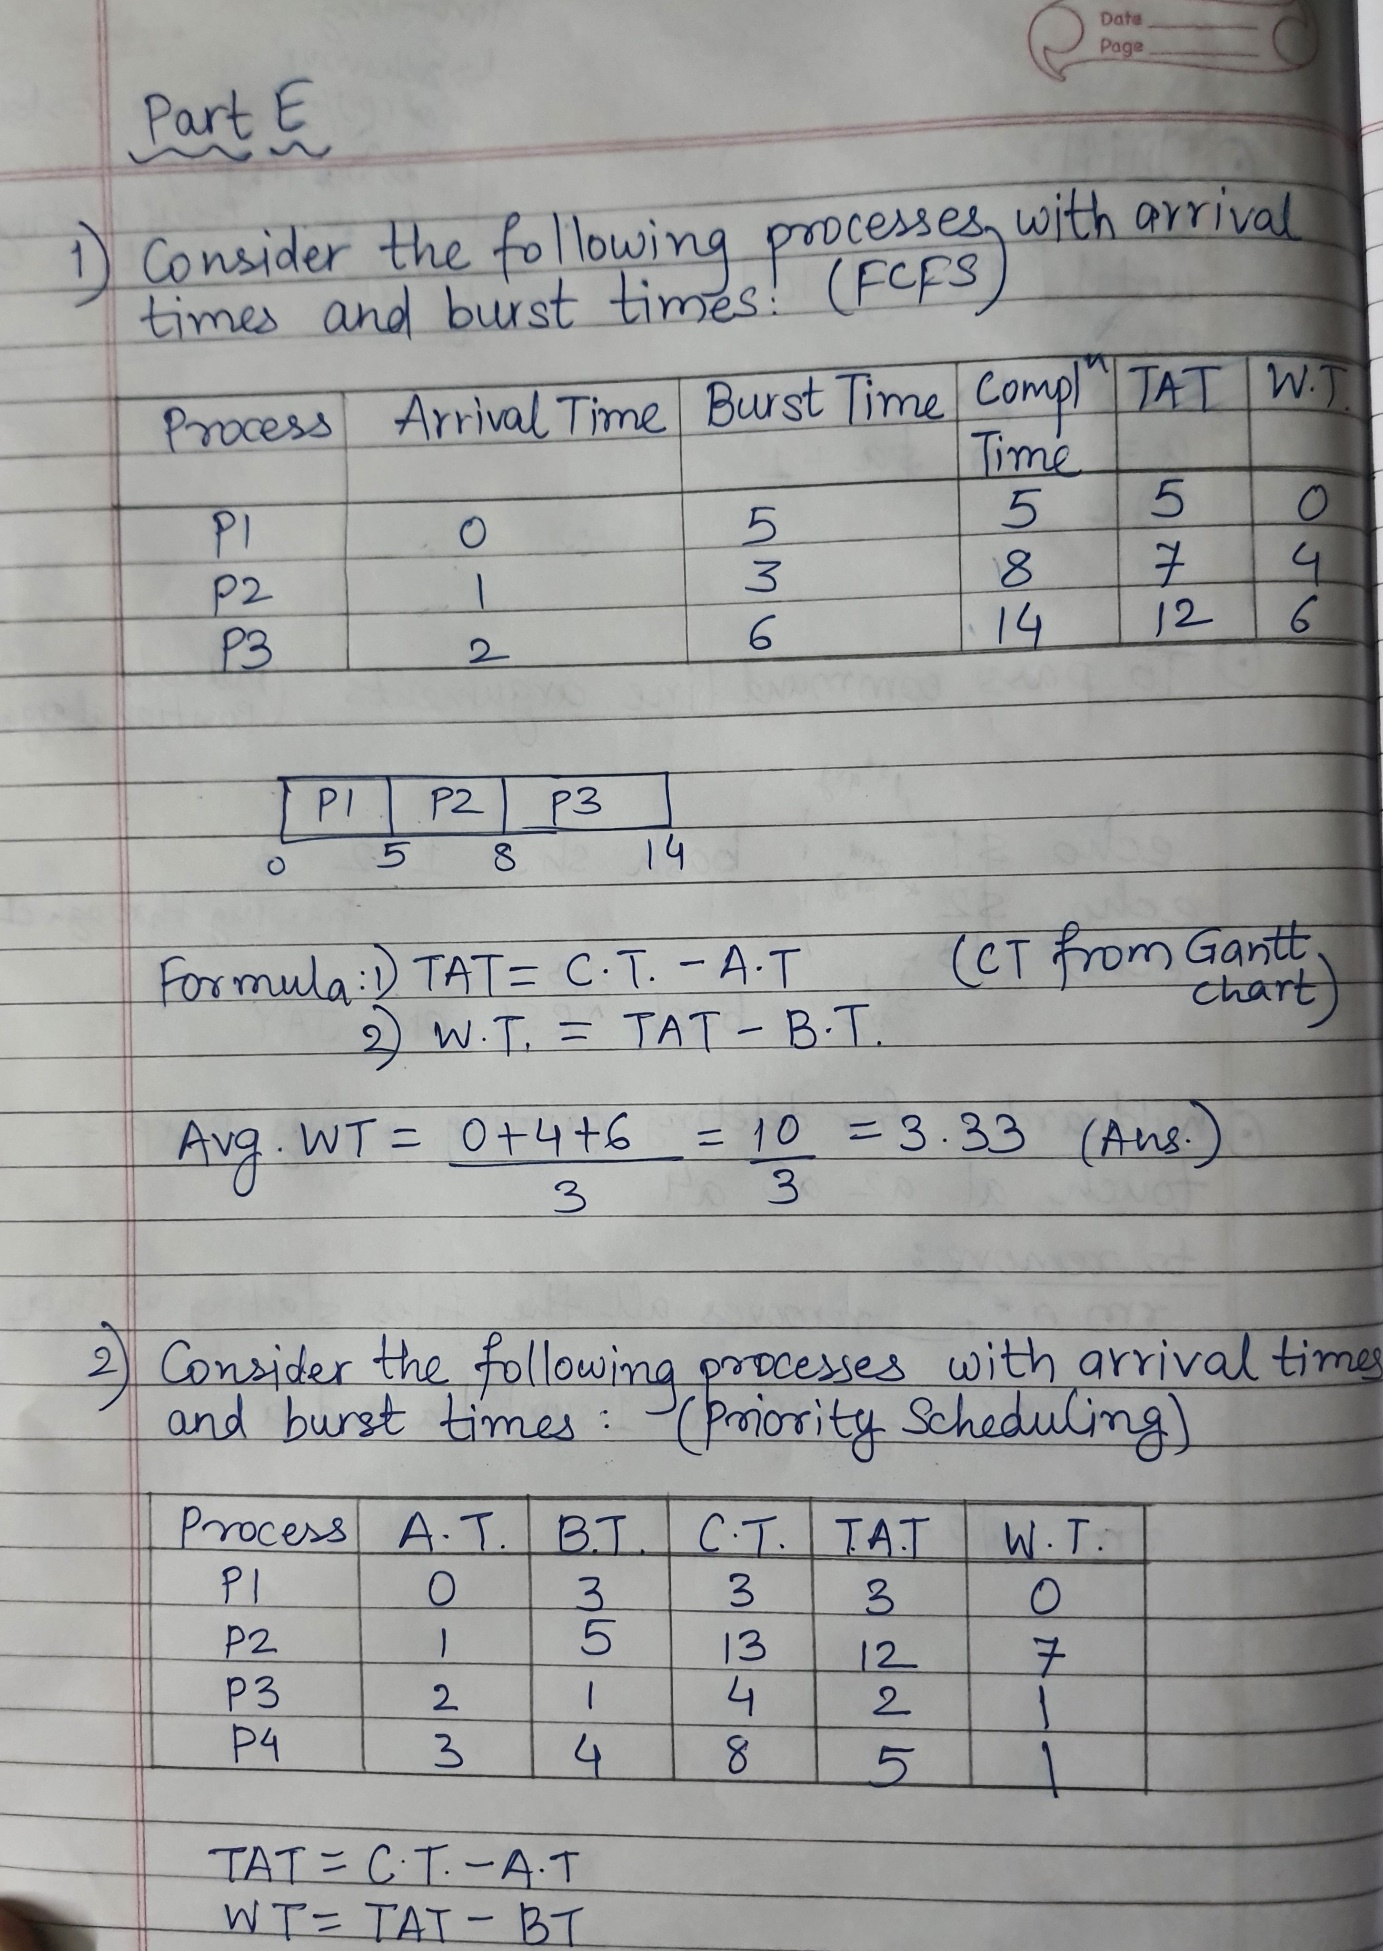 Date
Page
Part E
1) Consider the following processes, with arrival
times and burst times: (FCFS)
Process Arrival Time Burst Time Complⁿ Time TAT W.T.
P1 0 5 5 5 0
P2 1 3 8 7 4
P3 2 6 14 12 6
P1 P2 P3
0 5 8 14
Formula: 1) TAT = C.T. - A.T (CT from Gantt chart)
2) W.T. = TAT - B.T.
Avg. WT = 0+4+6 / 3 = 10 / 3 = 3.33 (Ans.)
2) Consider the following processes with arrival times
and burst times: (Priority Scheduling)
Process A.T. B.T. C.T. T.A.T W.T.
P1 0 3 3 3 0
P2 1 5 13 12 7
P3 2 1 4 2 1
P4 3 4 8 5 1
TAT = C.T. - A.T
WT = TAT - BT